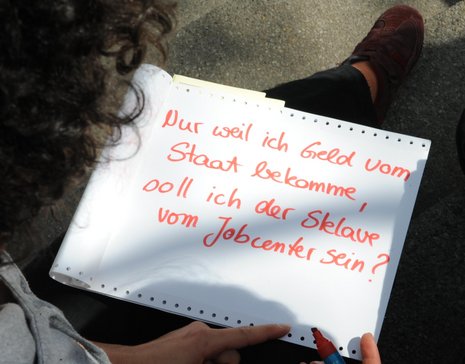 Nur weil ich Geld vom
Staat bekomme,
soll ich der Sklave
vom Jobcenter sein?